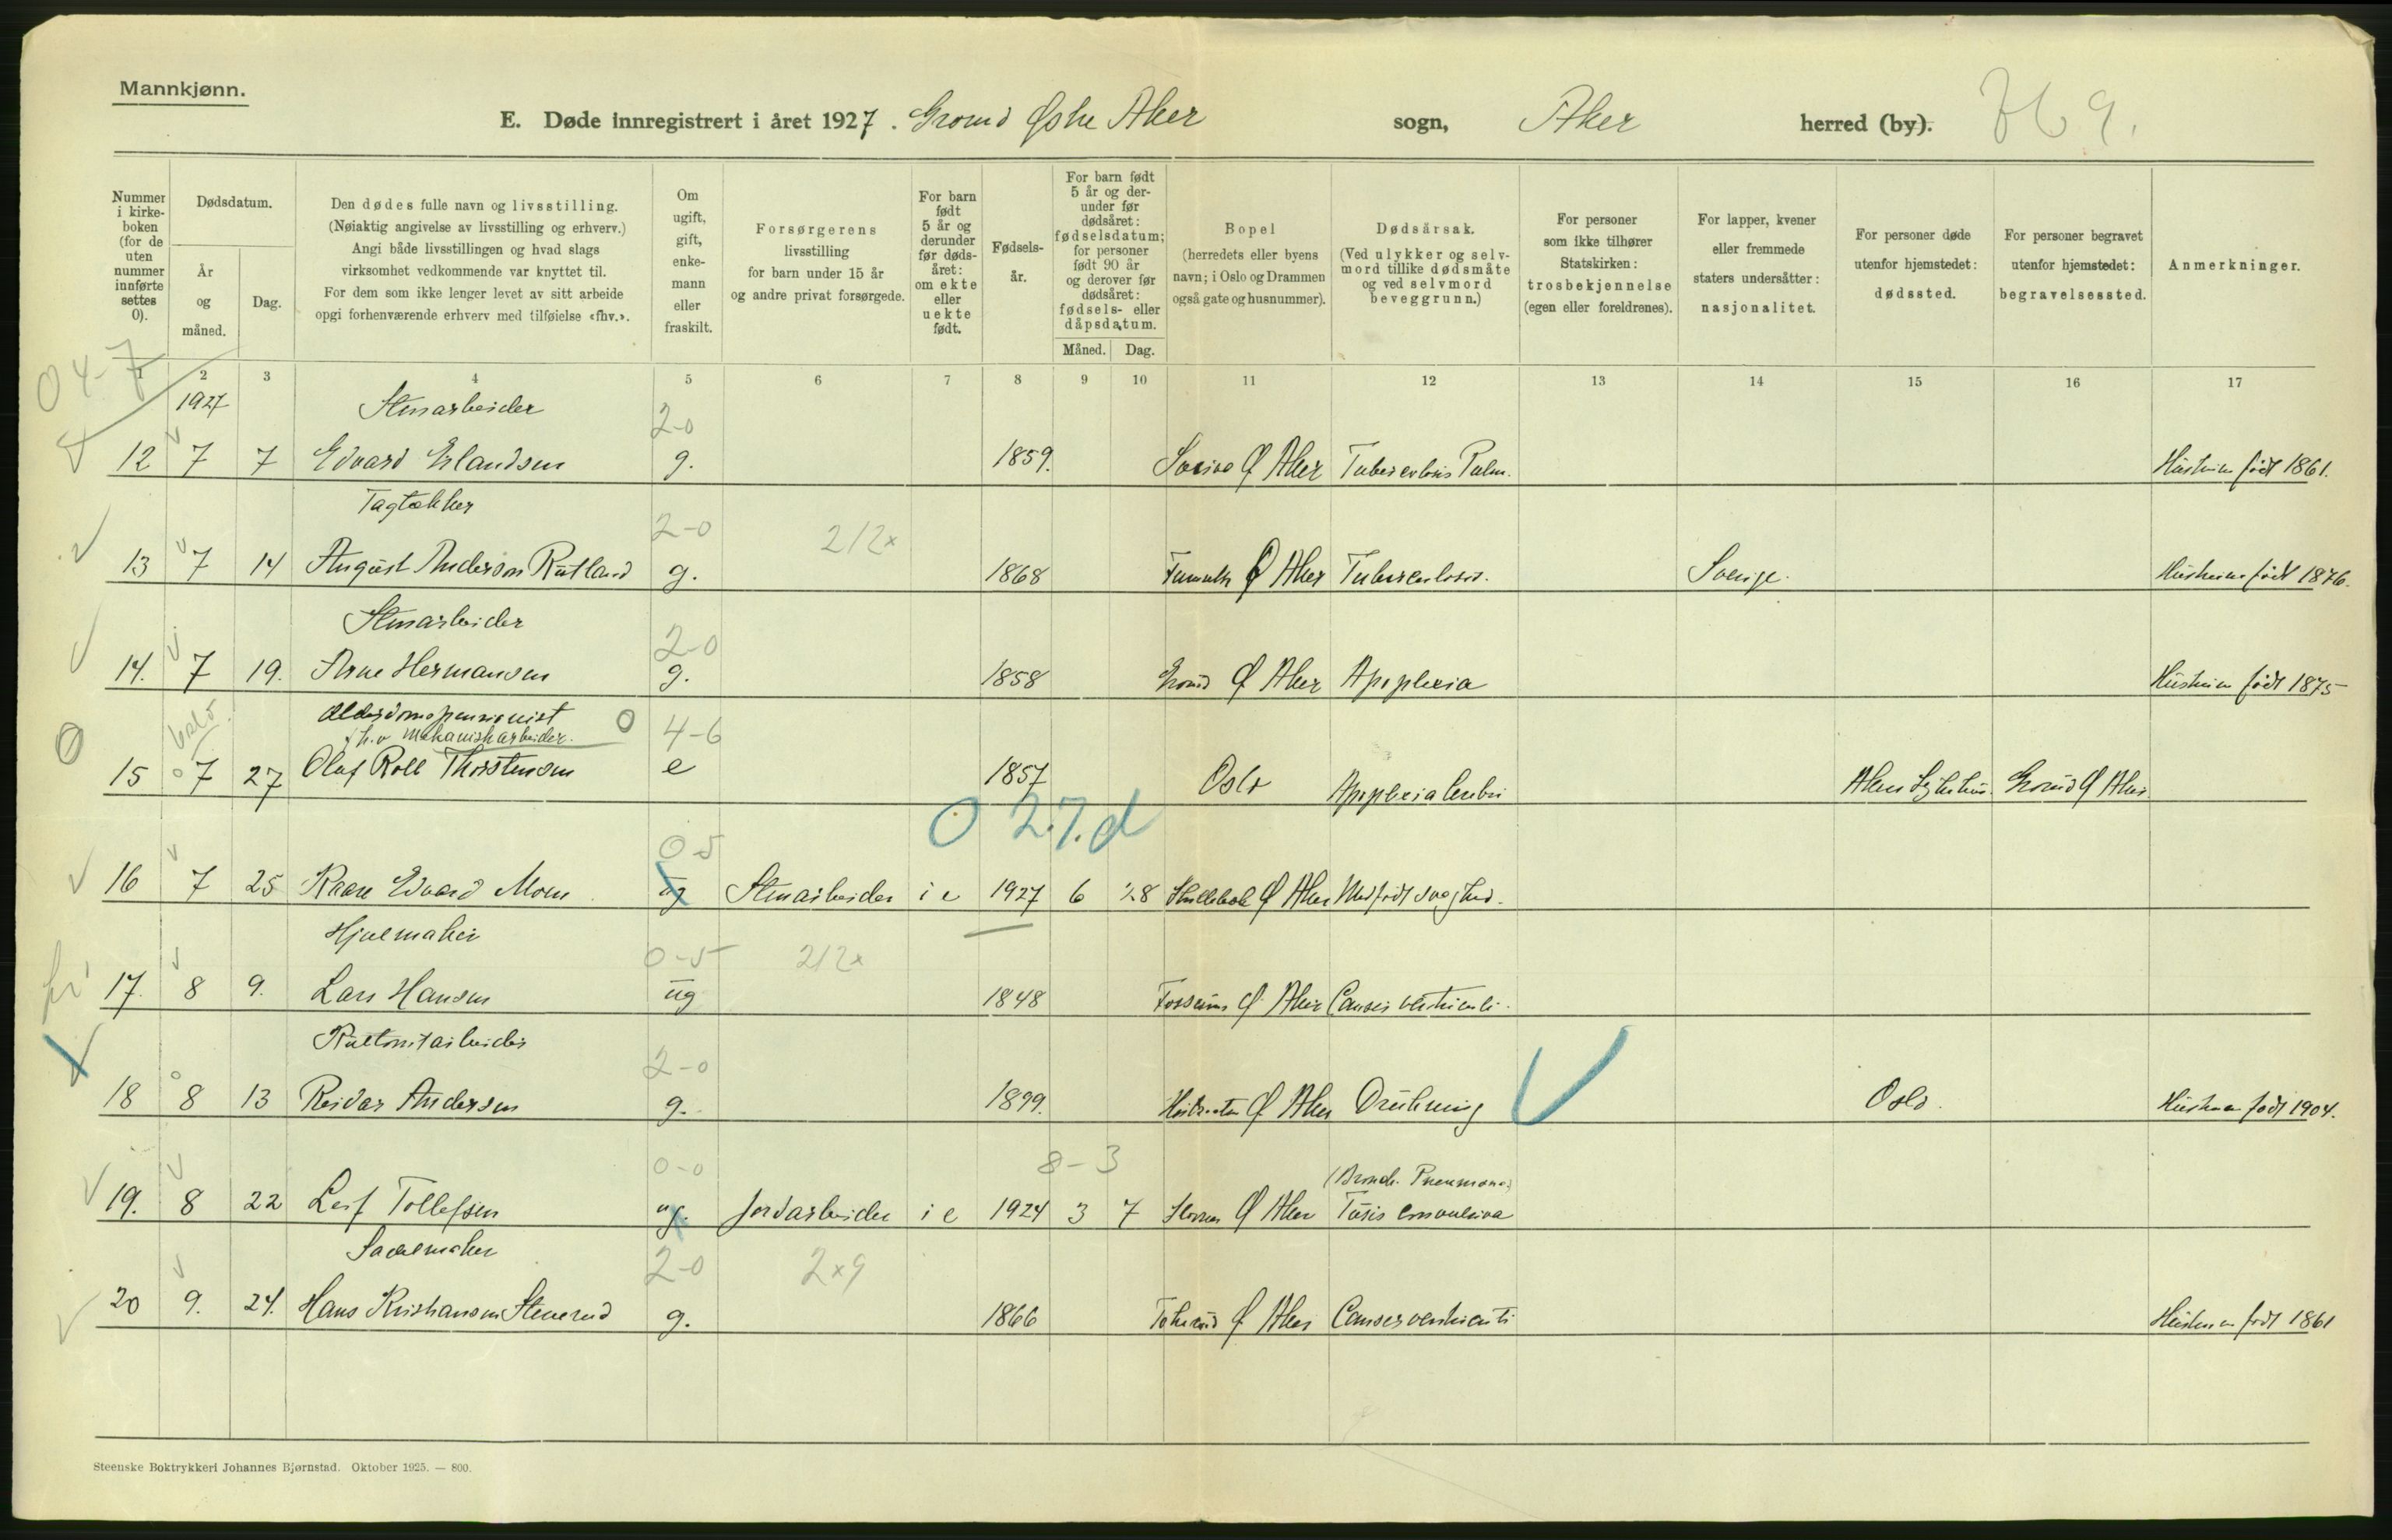 Mannkjønn.
E. Døde innregistrert i året 1927. Grorud Østre Aker sogn, Aker herred (by).
Nummer i kirkeboken (for de uten nummer innførte settes 0).
Dødsdatum.
År og måned.
Dag.
Den dødes fulle navn og livsstilling.
(Nøiaktig angivelse av livsstilling og erhverv.)
Angi både livsstillingen og hvad slags
virksomhet vedkommende var knyttet til.
For dem som ikke lenger levet av sitt arbeide
opgi forhenværende erhverv med tilføielse «fhv.».
Om ugift, gift, enkemann eller fraskilt.
Forsørgerens
livsstilling
for barn under 15 år
og andre privat forsørgede.
For barn født 5 år og derunder før dødsåret: om ekte eller uekte født.
Fødselsår.
For barn født 5 år og derunder før dødsåret: fødselsdatum; for personer født 90 år og derover før dødsåret: fødsels- eller dåpsdatum.
Måned. Dag.
Bopel
(herredets eller byens
navn; i Oslo og Drammen
også gate og husnummer).
Dødsårsak.
(Ved ulykker og selvmord tillike dødsmåte og ved selvmord beveggrunn.)
For personer
som ikke tilhører
Statskirken:
trosbekjennelse
(egen eller foreldrenes).
For lapper, kvener
eller fremmede
staters undersåtter:
nasjonalitet.
For personer døde
utenfor hjemstedet:
dødssted.
For personer begravet
utenfor hjemstedet:
begravelsessted.
Anmerkninger.
04-7
1 2 3 4 5 6 7 8 9 10 11 12 13 14 15 16 17
1927 Stenarbeider 2-0
12 7 7 Edvard Erlandsen g. 1859. Ø Aker Tuberculosis Pulm. Hustruen født 1861.
Tagtekker 2-0 212x
13 7 14 August Anderson Rutland g. 1868 Ø Aker Tuberculosis. Sverige. Hustruen født 1876.
Stenarbeider 2-0
14. 7 19. Arne Hermansen g. 1858 Grorud Ø Aker Apoplexia Hustruen født 1875
Alderdomspensionist 0 4-6
fh.v mekanisk arbeider.
15 7 27 Olaf Roll Thorstensen e 1857 Oslo Apoplexia Cerebri Aker Sykehus. Grorud Ø Aker.
0 27.d
0-5
16 7 25 Kaare Edvard Moen ug Stenarbeider i e 1927 6 28 Ø Aker Medfødt svaghed.
Hjulmaker 0-5 212x
17. 8 9. Lars Hansen ug 1848 Fossum Ø Aker Cancer ventriculi.
2-0
18 8 13 Reidar Andersen g. 1899. Ø Aker Drukning Oslo. Hustruen født 1904.
0-0 8-3 (Bronch. Pneumonia)
19. 8 22 Leif Tollefsen ug. Jordarbeider i e 1924 3 7 Ø Aker Tusis convulsiva
Sadelmaker 2-0 2x9
20 9. 24. Hans Kristiansen Stenerud g. 1866 Ø Aker Cancer ventriculi Hustruen født 1861
Steenske Boktrykkeri Johannes Bjørnstad. Oktober 1925. — 800.